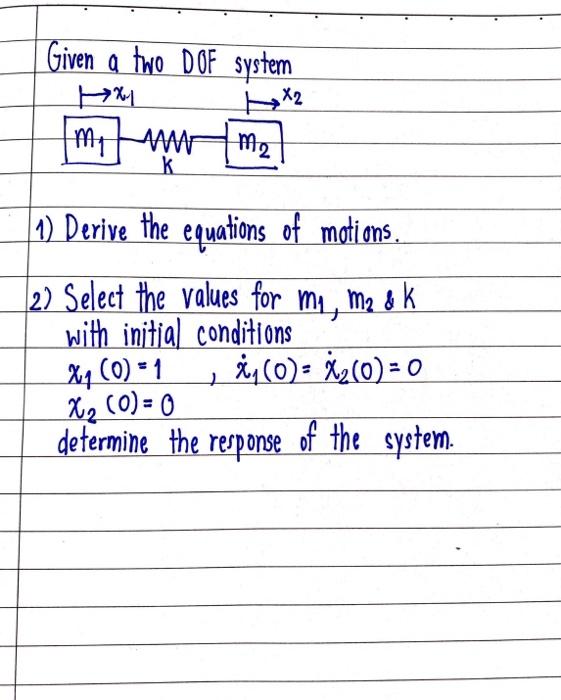 Given a two DOF system
x1 x2
m1 m2
k
1) Derive the equations of motions.
2) Select the values for m1, m2 & k
with initial conditions
x1 (0) = 1 , ẋ1 (0) = ẋ2 (0) = 0
x2 (0) = 0
determine the response of the system.